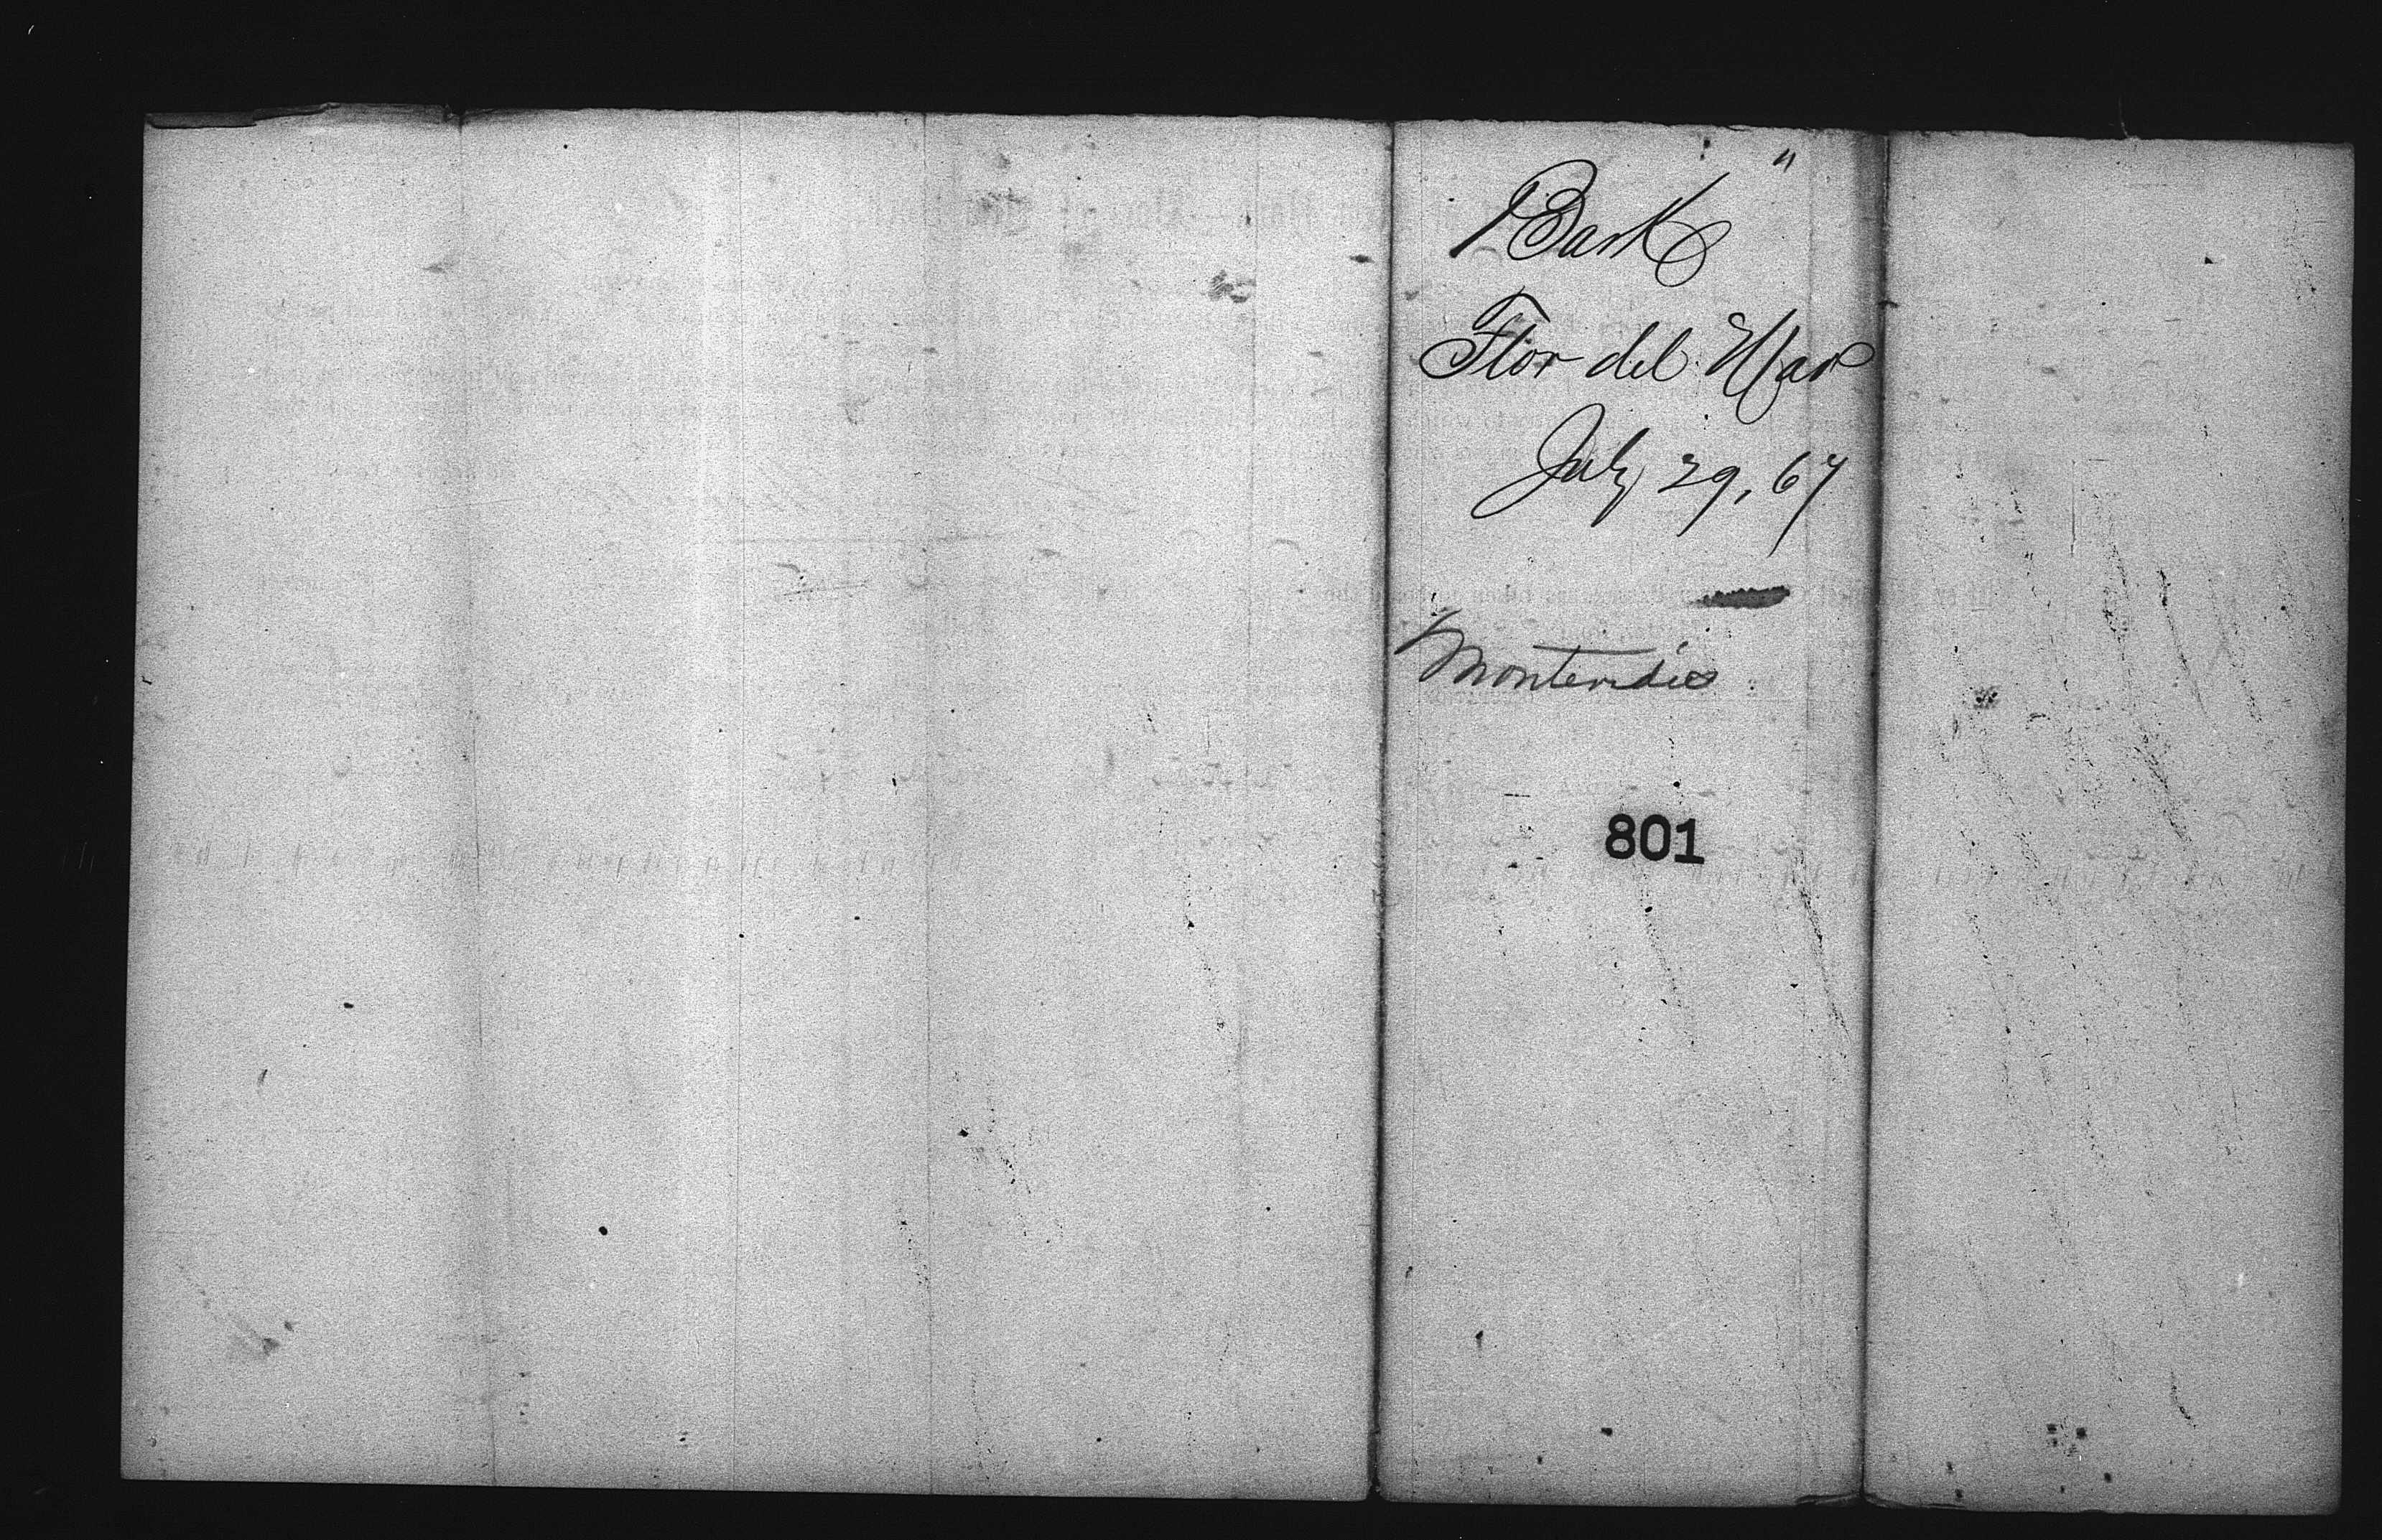 Bark
Flor del Mar
July 29, 67
Montevideo
801